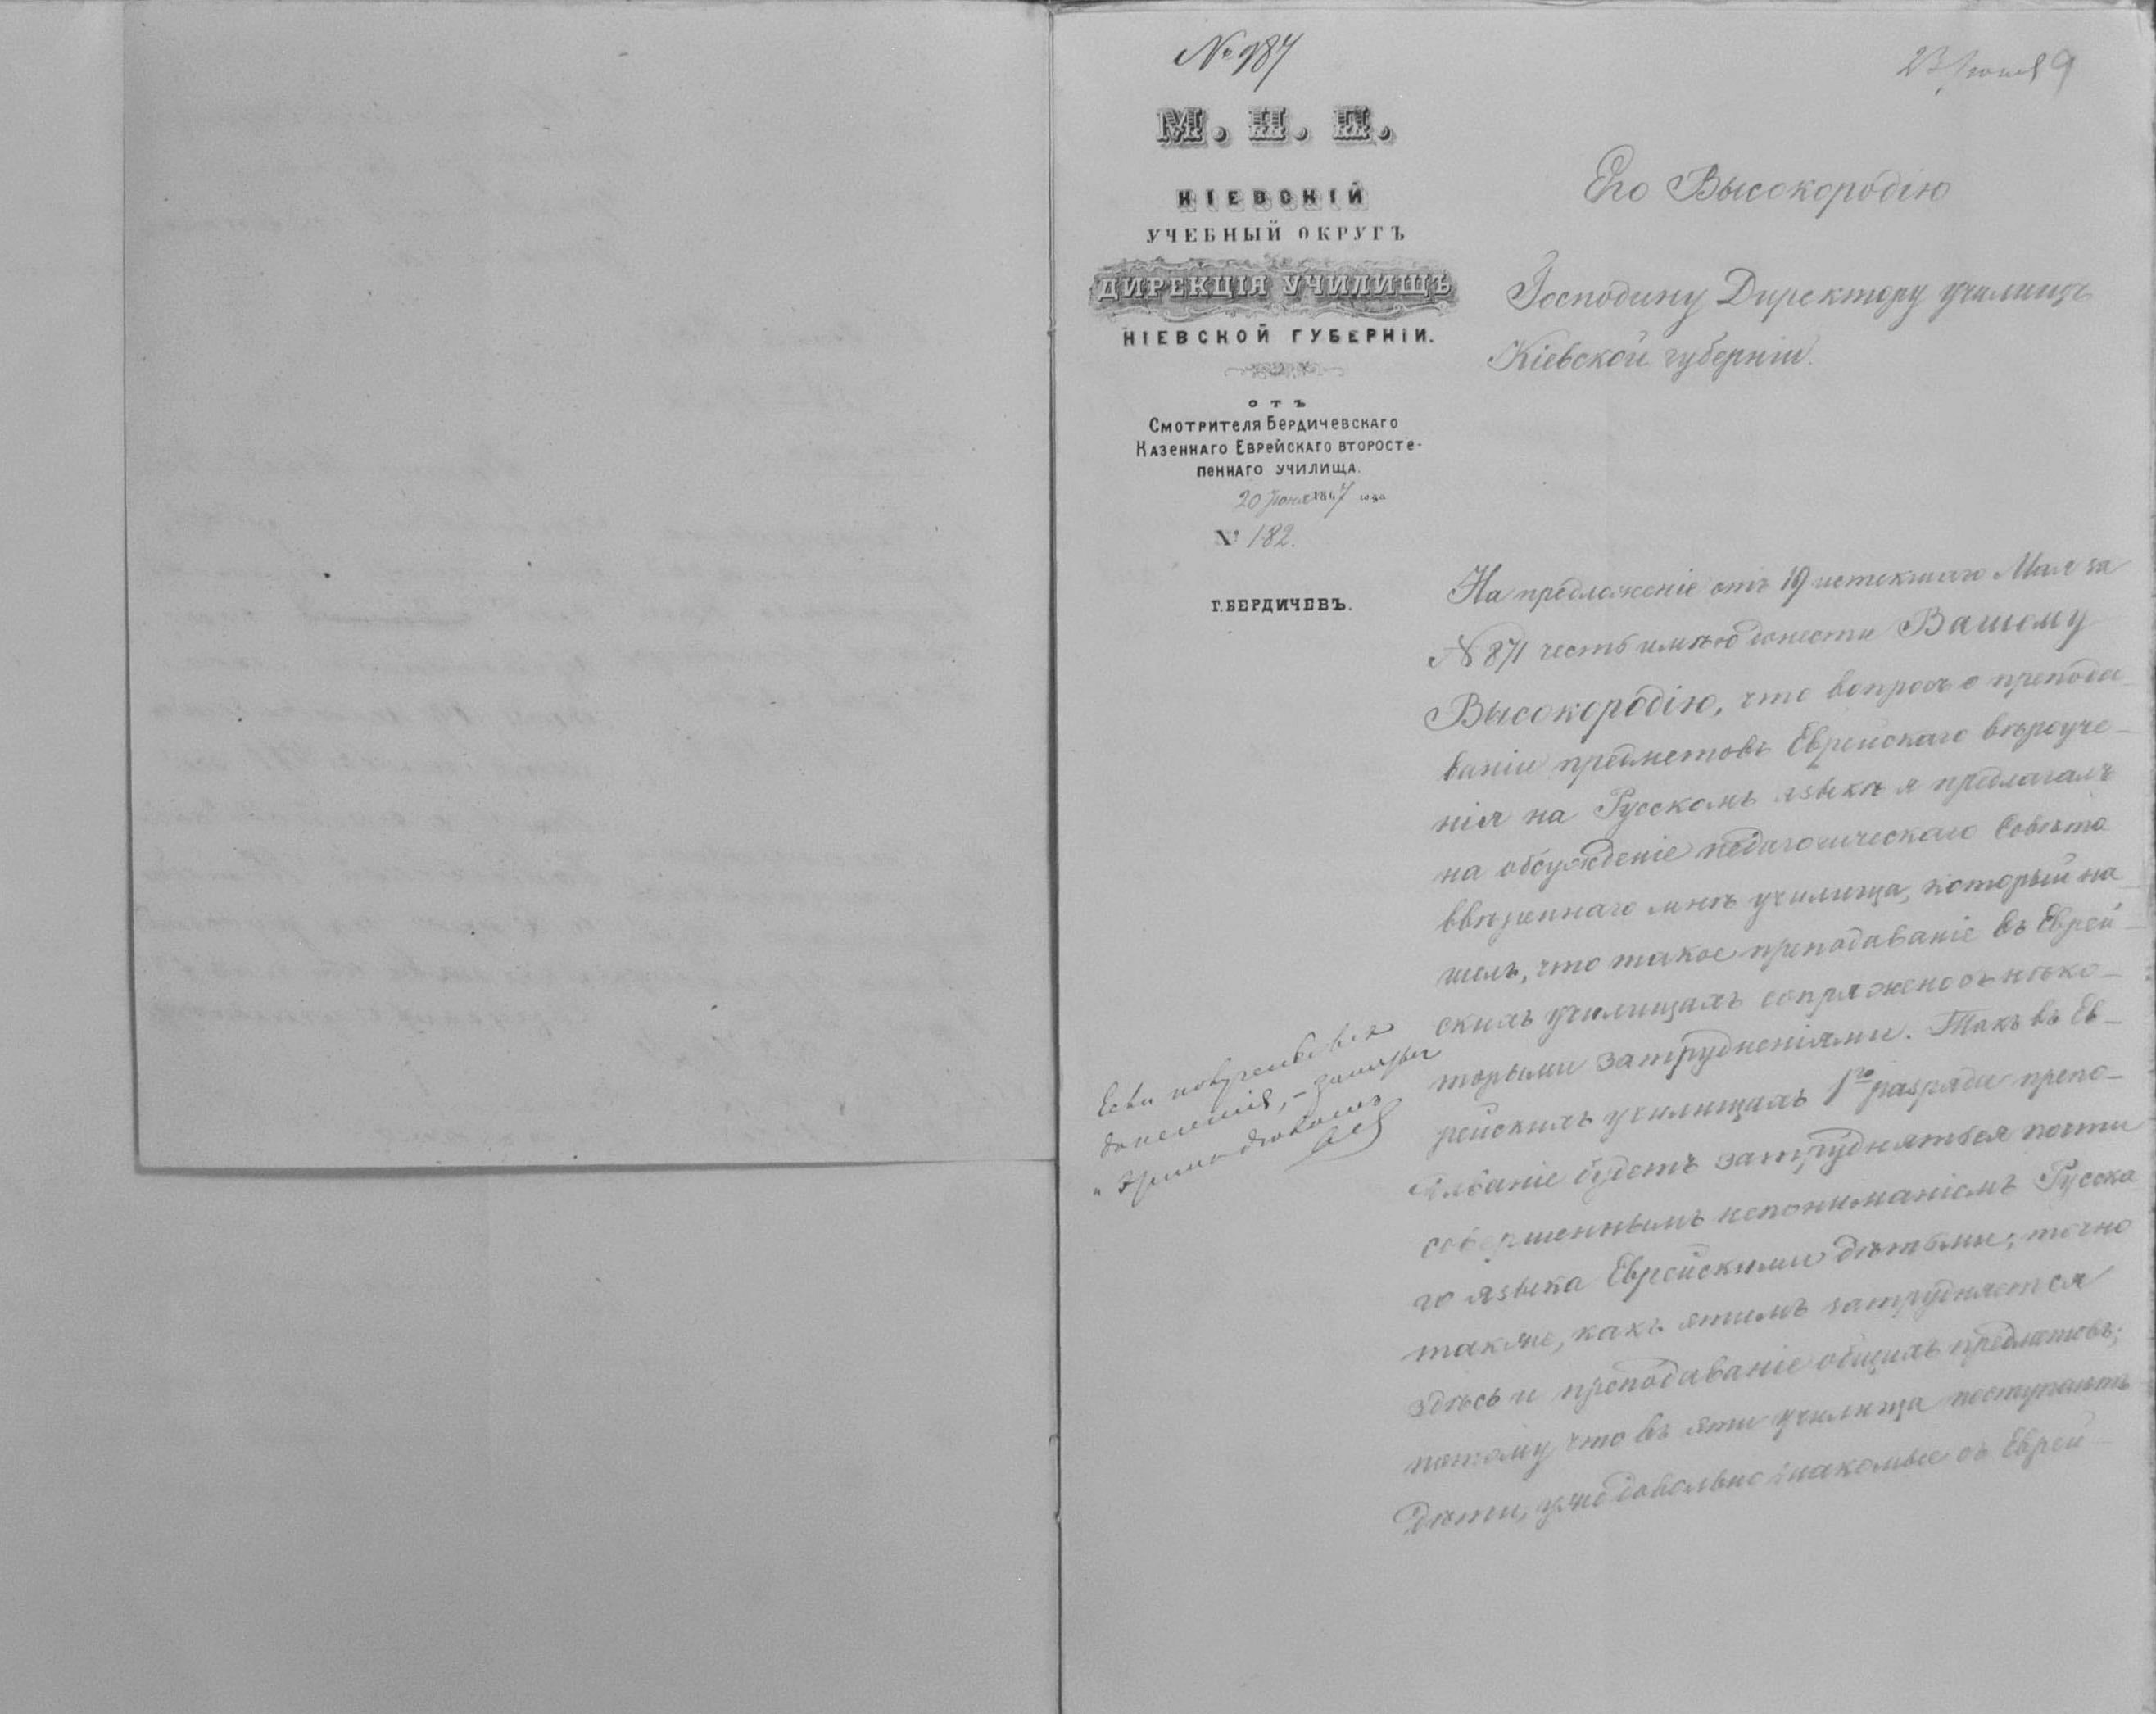 № 987
23 Іюня 9
М. Н. П.
КІЕВСКІЙ
УЧЕБНЫЙ ОКРУГЪ
ДИРЕКЦІЯ УЧИЛИЩЪ
КІЕВСКОЙ ГУБЕРНІИ.
ОТЪ
Смотрителя Бердичевскаго
Казеннаго Еврейскаго второсте-
пеннаго училища.
20 Іюня 1867 года
№ 182.
Г. БЕРДИЧЕВЪ.
Его Высокородію
Господину Директору училищъ
Кіевской губерніи.
На предложеніе отъ 19 истекшаго Мая за
№ 871 честь имѣю донести Вашему
Высокородію, что вопросъ о препода-
ваніи предметовъ Еврейскаго вѣроуче-
нія на Русскомъ языкѣ я предлагалъ
на обсужденіе педагогическаго Совѣта
ввѣреннаго мнѣ училища, который на-
шелъ, что такое преподаваніе въ Еврей-
скихъ училищахъ сопряжено съ нѣко-
торыми затрудненіями. Такъ въ Ев-
рейскихъ училищахъ 1го разряда препо-
даваніе будетъ затрудняться почти
совершеннымъ непониманіемъ Русска
го языка Еврейскими дѣтьми; точно
также, какъ этимъ затрудняется
здѣсь и преподаваніе общихъ предметовъ;
потому что въ эти училища поступаютъ
дѣти, уже довольно знакомые съ Еврей-
Если
донесенія, –